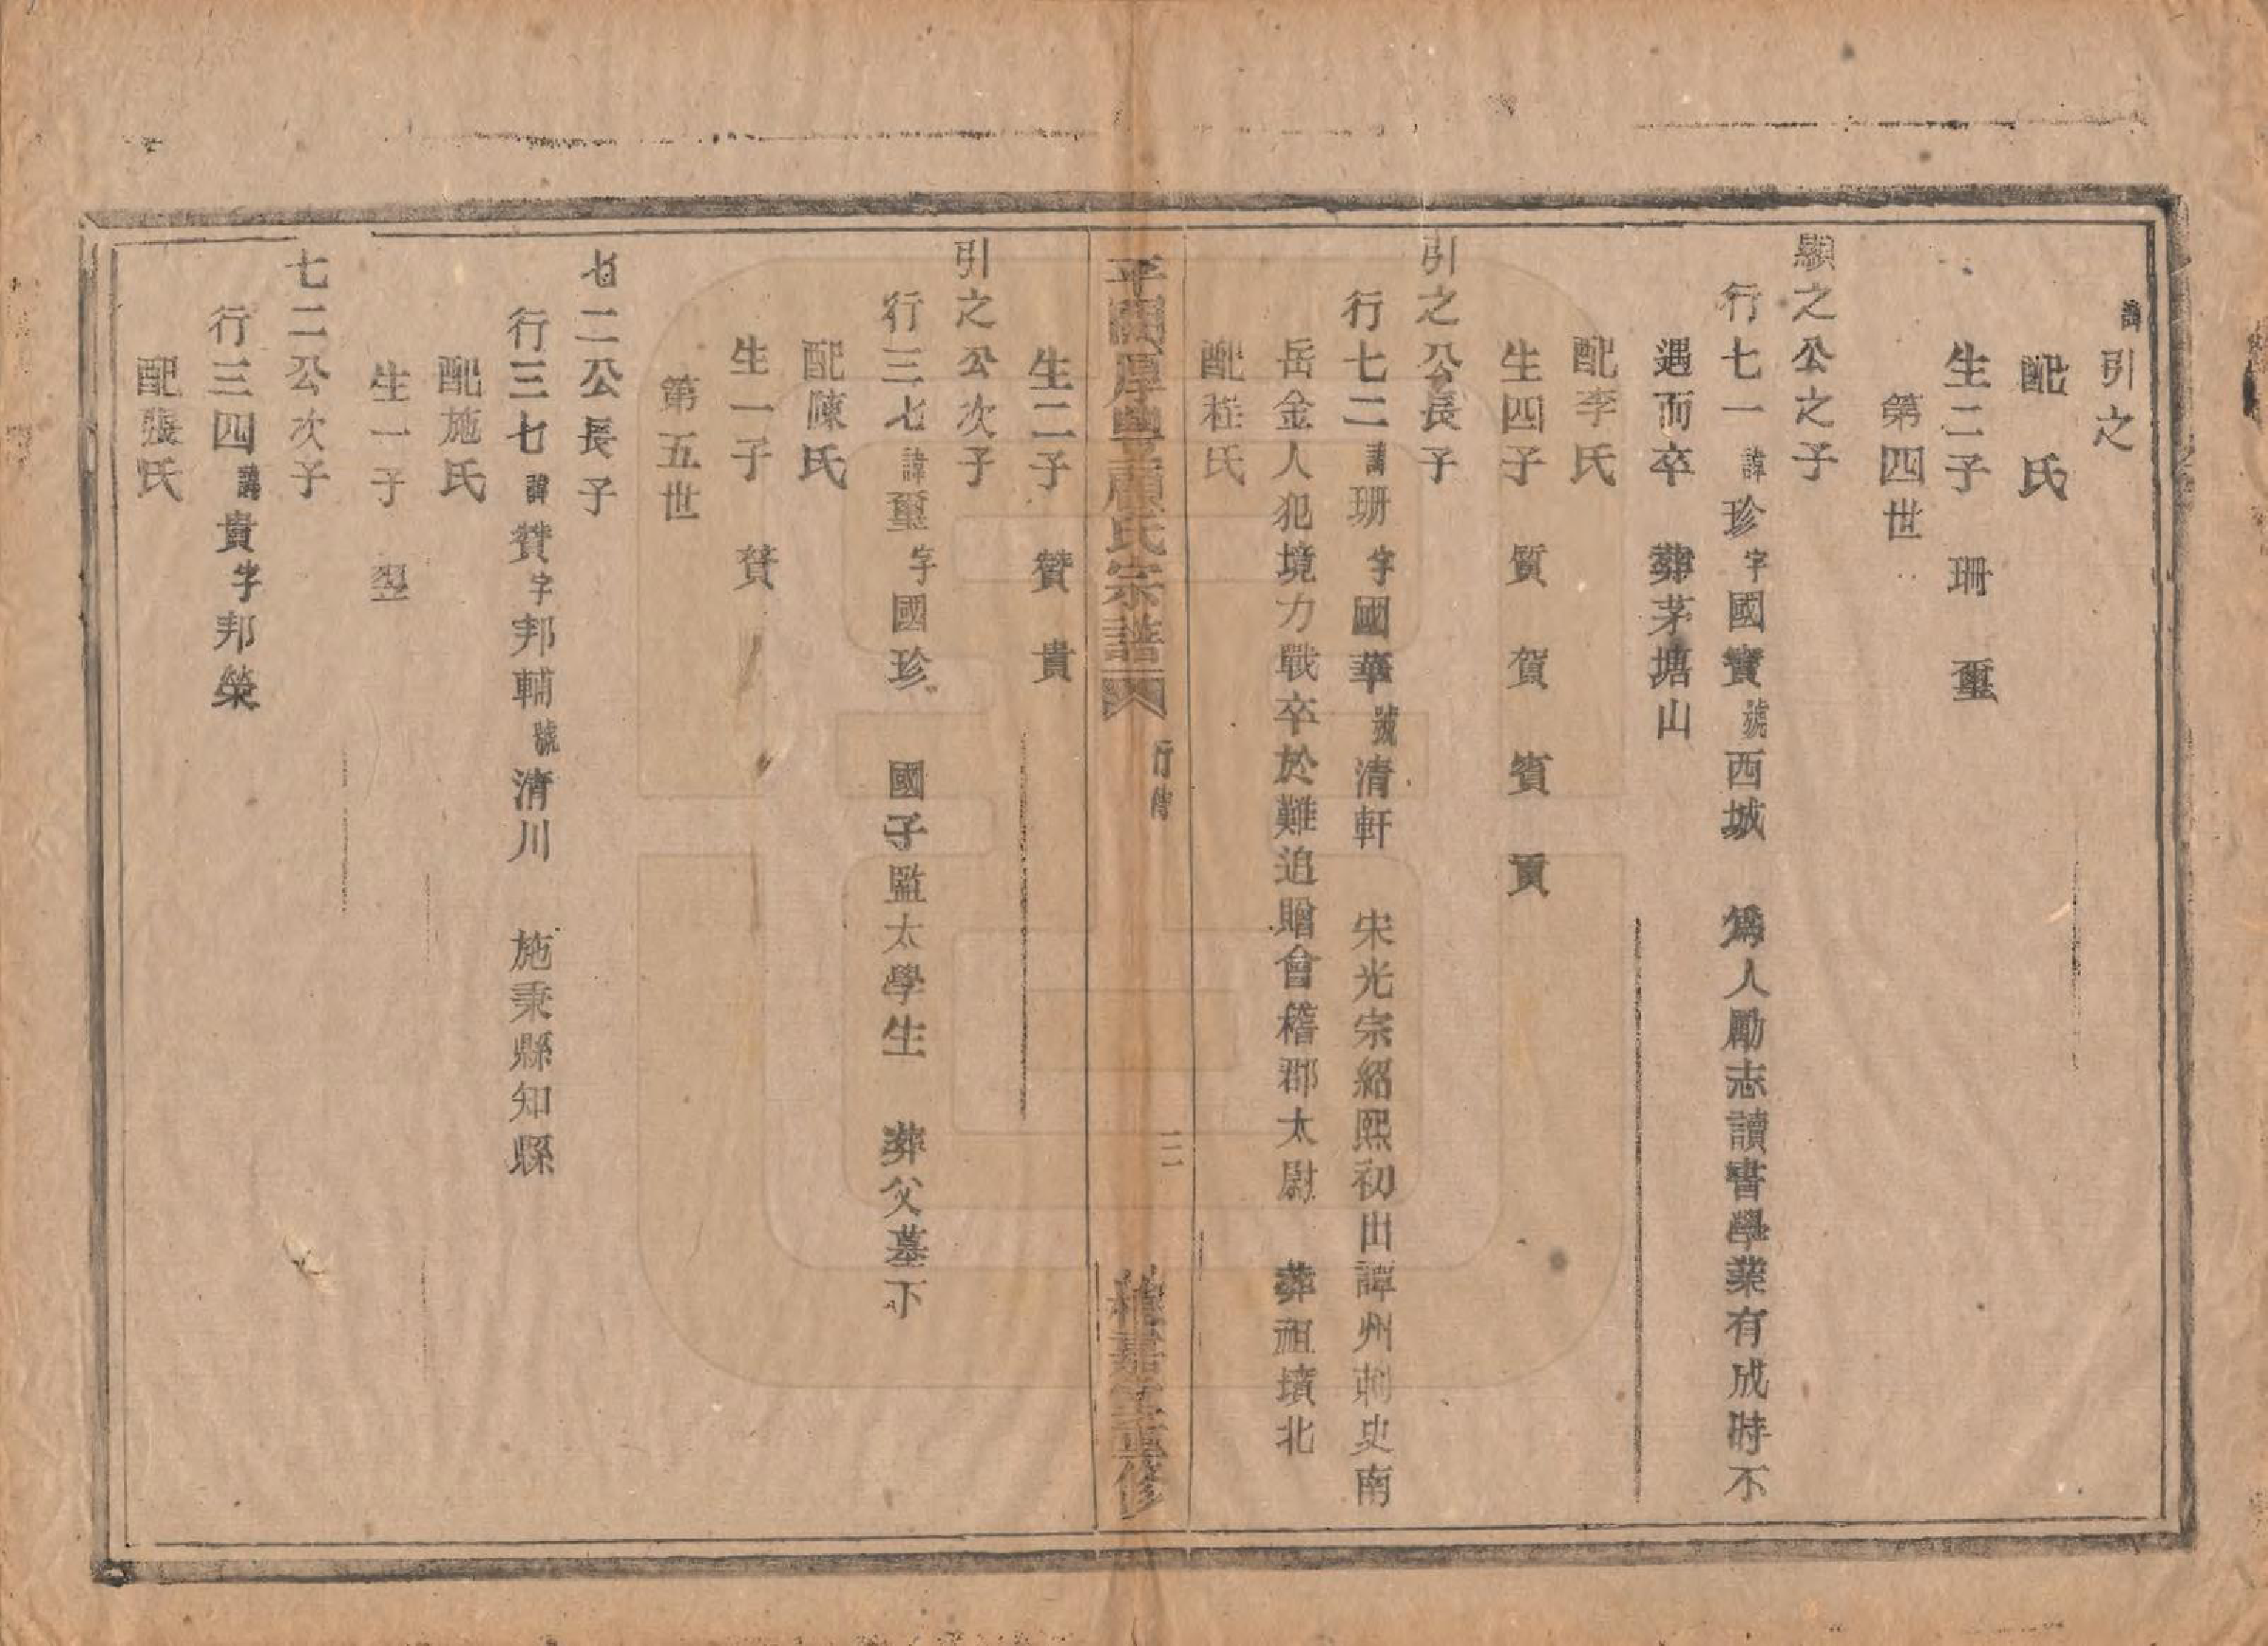 諱引之
配　氏
生二子　珊　璽
第四世
顯之公之子
行七一諱珍字國寶號西城　爲人勵志讀書學業有成時不
遇而卒　葬茅塘山
配李氏
生四子　質　賀　賓　賈
引之公長子
行七二諱珊字國華號清軒　宋光宗紹熙初出譚州刺史南
岳金人犯境力戰卒於難追贈會稽郡太尉　葬祖墳北
配程氏
平閞厚豐顧氏宗譜　行傳　二　積善堂重修
生二子　贊　貴
引之公次子
行三七諱璽字國珍　國子監太學生　葬父墓下
配陳氏
生一子　贇
第五世
七二公長子
行三七諱贊字邦輔號清川　施秉縣知縣
配施氏
生一子　堊
七二公次子
行三四諱貴字邦榮
配張氏